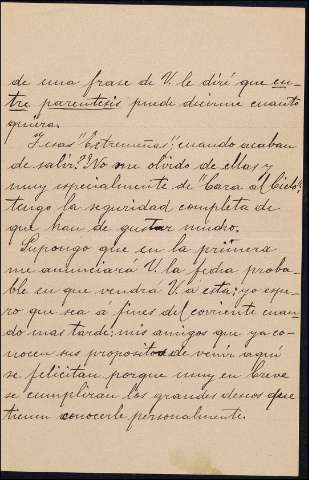 de una frase de V. le diré que en-
tre parentesis puede decirme cuanto
quiera.
Y esas "Extremeñas", cuando acaban
de salir? No me olvido de ellas y
muy especialmente de "Cara al Cielo";
tengo la seguridad completa de
que han de gustar mucho.
Supongo que en la primera
me anunciará V. la fecha proba-
ble en que vendrá V. a esta; yo espe-
ro que sea á fines del corriente cuan-
do mas tarde; mis amigos que ya co-
nocen sus propositos de venir aqui
se felicitan porque muy en breve
se cumpliran los grandes deseos que
tienen conocerle personalmente.